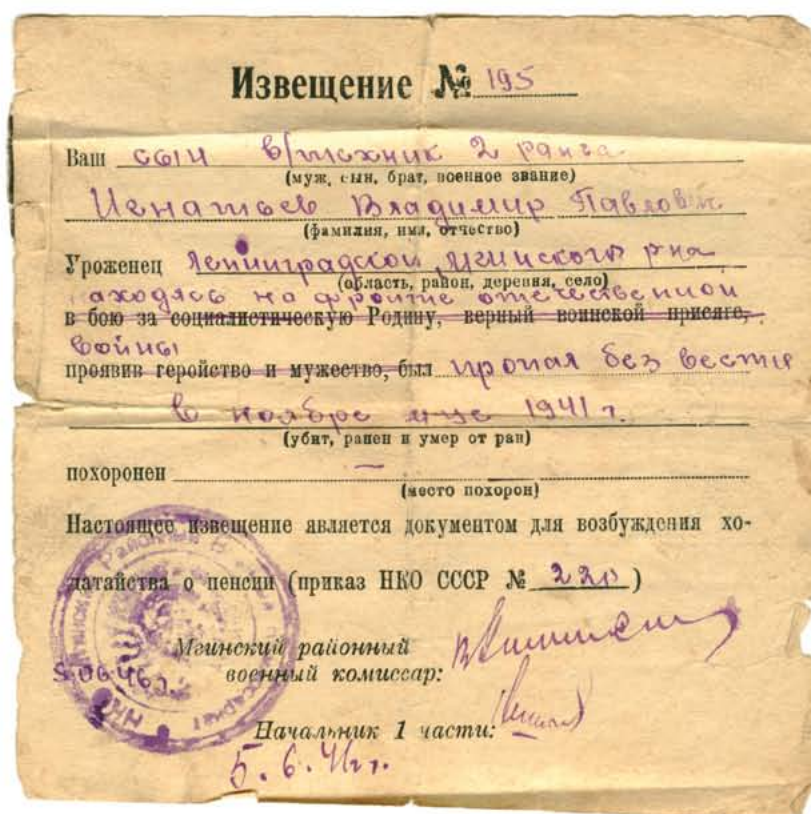 Извещение № 195
Ваш сын в/техник 2 ранга
(муж, сын, брат, военное звание)
Игнатьев Владимир Павлович
(фамилия, имя, отчество)
Уроженец Ленинградской, Мгинского р-на
(область, район, деревня, село)
находясь на фронте отечественной
в бою за социалистическую Родину, верный воинской присяге,
войны
проявив геройство и мужество, был пропал без вести
в ноябре м-це 1941 г.
(убит, ранен и умер от ран)
похоронен —
(место похорон)
Настоящее извещение является документом для возбуждения хо-
датайства о пенсии (приказ НКО СССР № 220)
Мгинский районный
военный комиссар:
5.06.46 г.
Начальник 1 части:
5.6.46 г.